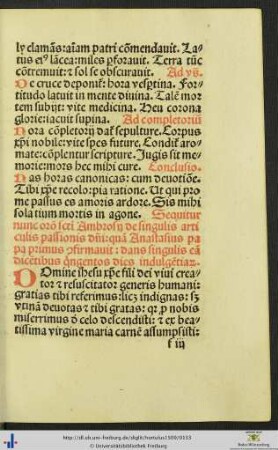 ly clamās: aīam patri cōmendauit. La-
tus eiꝰ lācea: miles ꝑforauit. Terra tūc
cōtremuit: ⁊ sol se obscurauit. Ad vs.
De cruce deponitᷣ: hora vesꝑtina. For-
titudo latuit in mente diuina. Talē mor
tem subijt: vite medicina. Heu corona
glorie: iacuit supina. Ad completoriū
Hora cōpletorij daṫ sepulture. Corpus
xp̄i nobile: vite spes future. Condiṫ aro-
mate: cōplentur scripture. Jugis sit me-
morie: mors hec mihi cure. Conclusio.
Has horas canonicas: cum deuotiōe.
Tibi xp̄e recolo: pia ratione. Ut qui pro
me passus es amoris ardore. Sis mihi
solatium mortis in agone. Sequitur
nunc orō sc̄ti Ambrosij de singulis arti
culis passionis dn̄i: quā Anastasius pa
pa primus ꝯfirmauit: dans singulis eā
dicētibus q̇ngentos dies indulgētiaꝝ.
Domine jhesu xp̄e fili dei viui crea-
tor ⁊ resuscitator generis humani:
gratias tibi referimus: licꝫ indignas: sꝫ
vtinā deuotas ⁊ tibi gratas: qꝛ ꝓ nobis
miserrimus d̄ celo descendisti: ⁊ ex be-
atissima virgine maria carnē assumpsisti:
f iij
http://dl.ub.uni-freiburg.de/diglit/hortulus1500/0103
© Universitätsbibliothek Freiburg